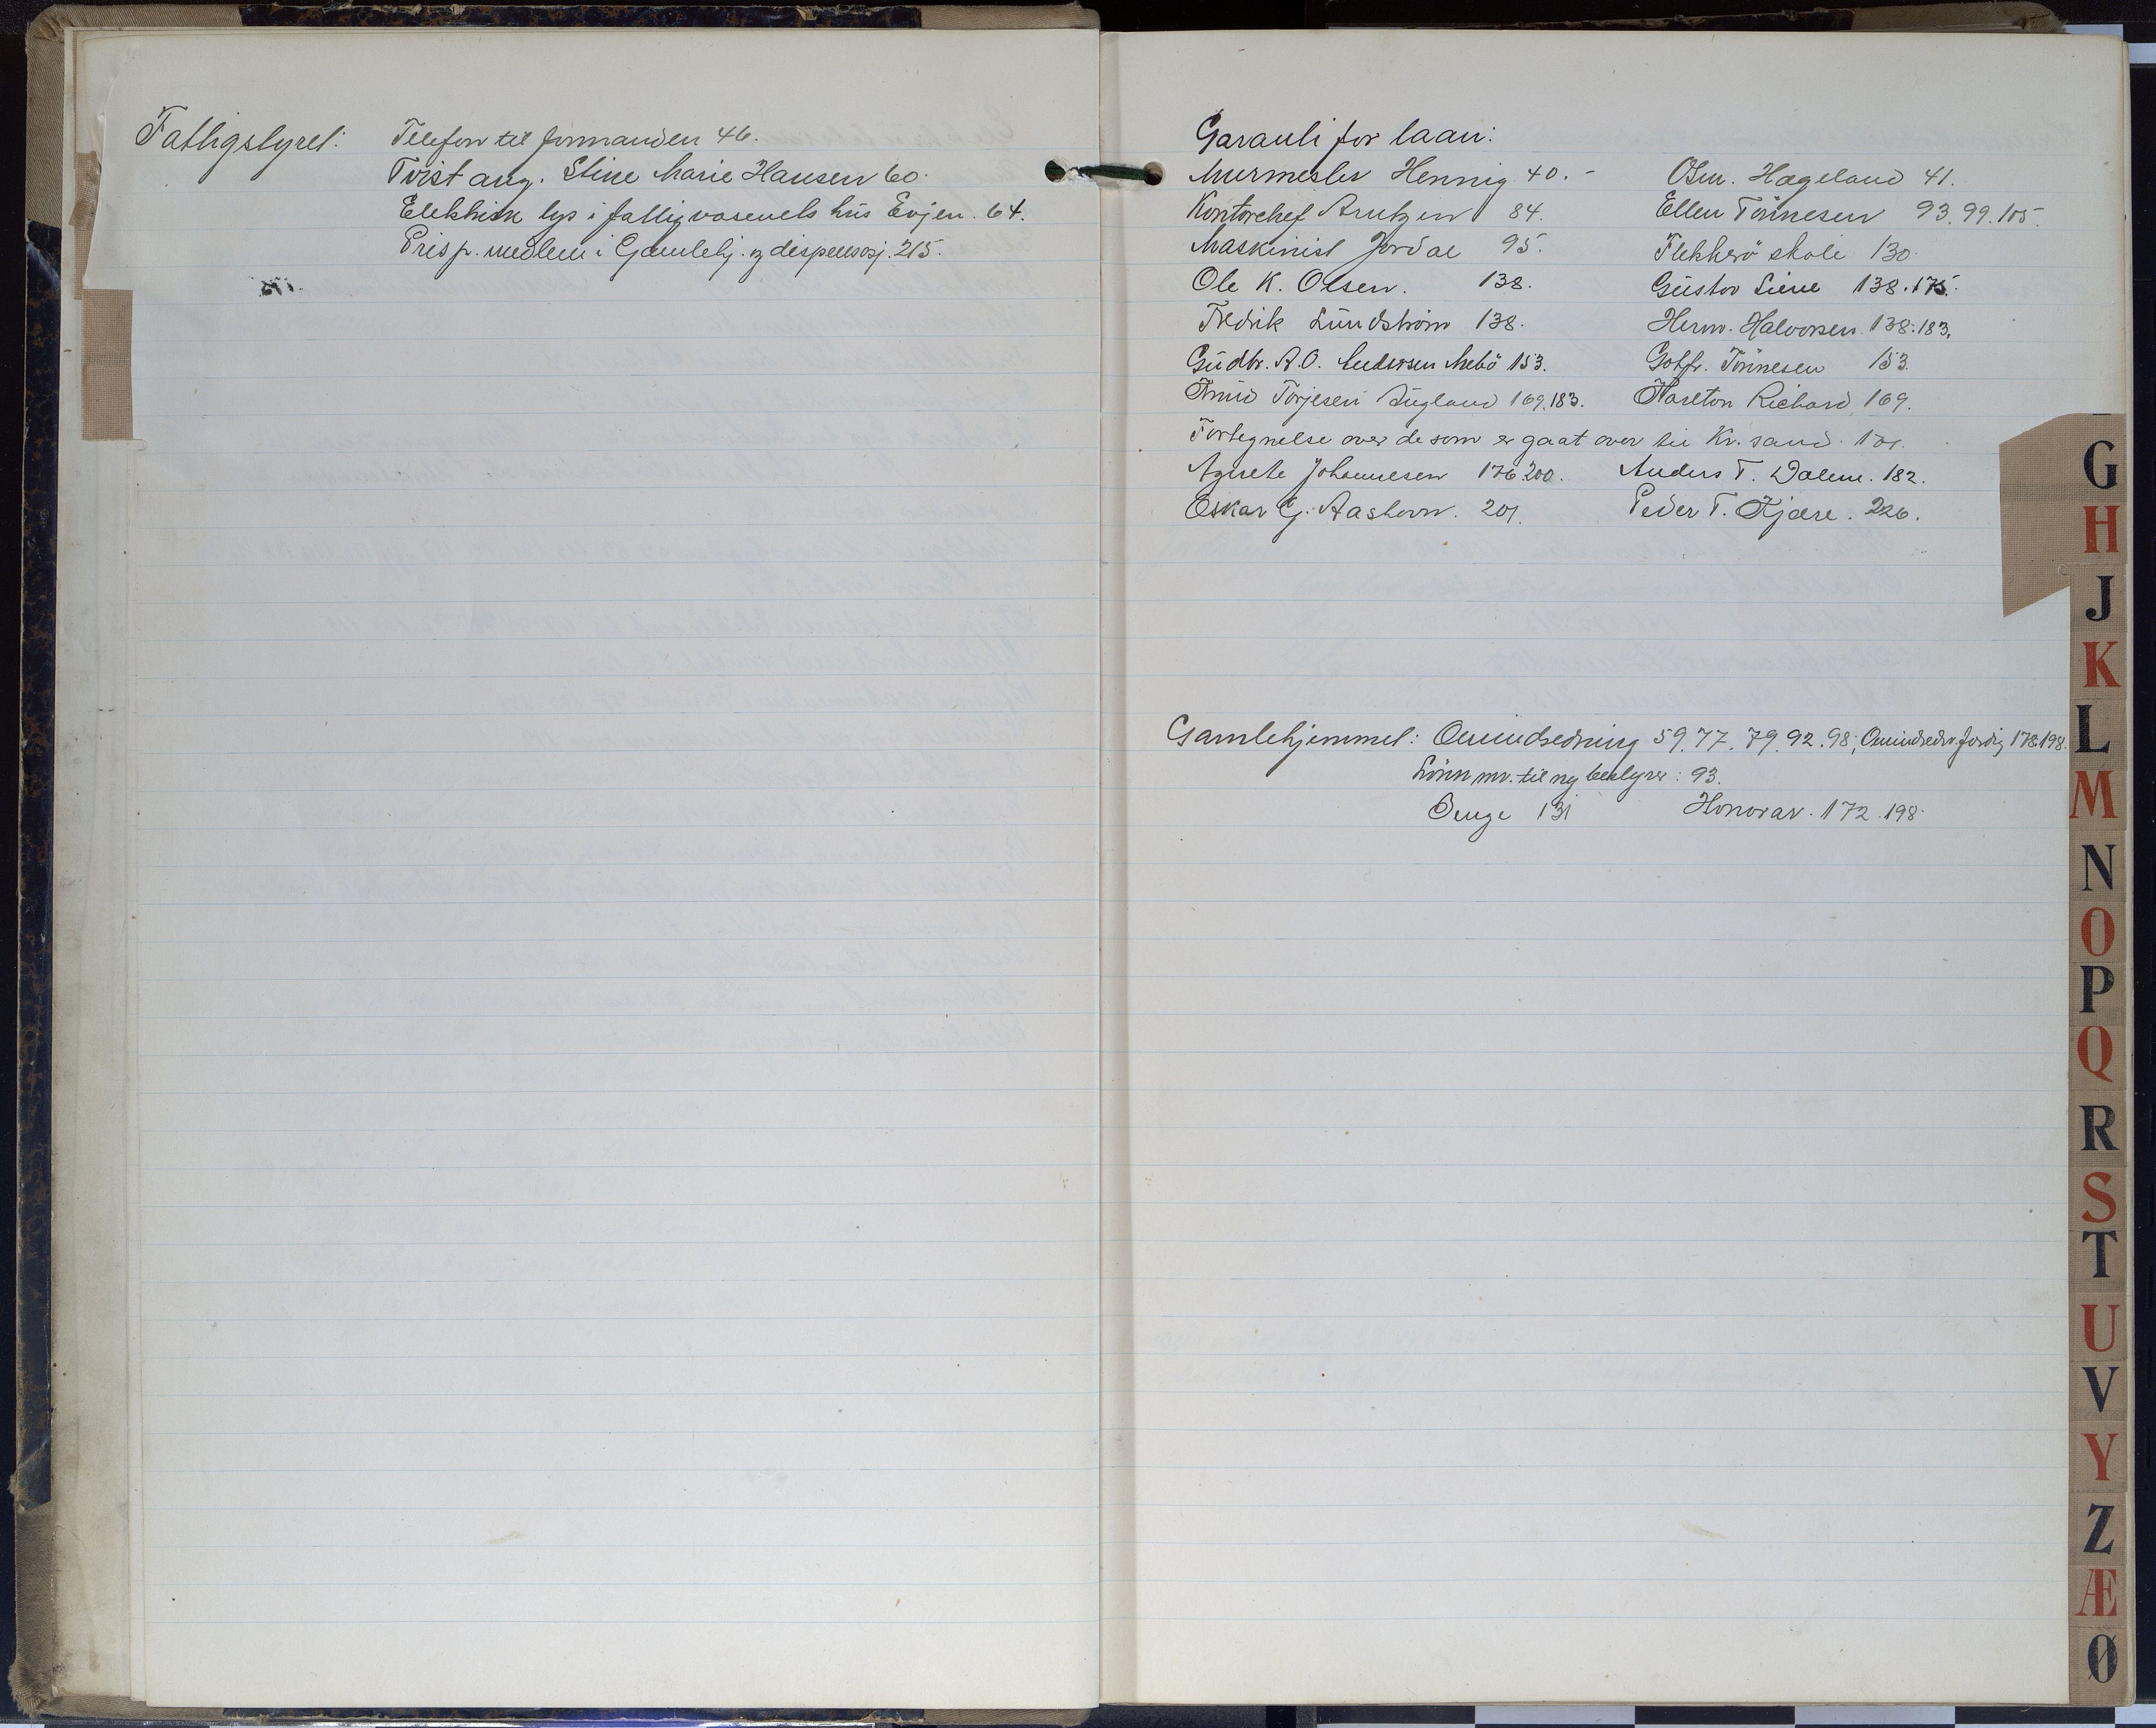 Fattigstyret: Telefon til formanden 46.
Tvist ang. Stine Marie Hansen 60.
Elektrisk lys i fattigvæsenets hus Evjen. 64.
Prisp. medlem i Gamlehj. og dispensasj. 215.
Garanti for laan:
Murmester Hennig 40. - Osm. Hageland 41.
Kontorchef Arntzen 84. Ellen Tönnesen 93. 99. 105.
Maskinist Jordal 95. Flekkerö skole 130.
Ole K. Olsen. 138. Gustav Liene 138. 175.
Fredrik Lundström 138. Herm. Halvorsen 138. 183.
Gudbr. A.O. Andersen Mebö 153. Gotfr. Tönnesen 153.
Knud Torjesen Augland 169. 183. Karlton Richard 169.
Fortegnelse over de som er gaat over til Kr. sand.
Agnete Johannesen 176 200. Anders T. Dalene. 182.
Oskar G. Aashavn. 201. Peder T. Kjære. 226.
Gamlehjemmet: Omindredning 59. 77. 79. 92. 98; Omindredn. færdig 178 198.
Lönn mv. til ny bestyrer: 93.
Senge 131 Honorar. 172. 198.
G
H
J
K
L
M
N
O
P
Q
R
S
T
U
V
Y
Z
Æ
Ø